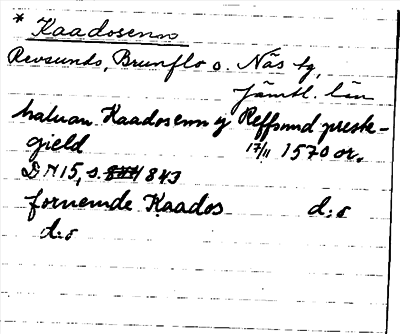 * Kaadosenn
Revsunds, Brunflo o. Näs tg,
Jämtl. län
haluan Kaadosenn y Reffsund preste-
gield 17/11 1570 or.
DN 15, s. 843
fornemde Kaados d:o
d:o